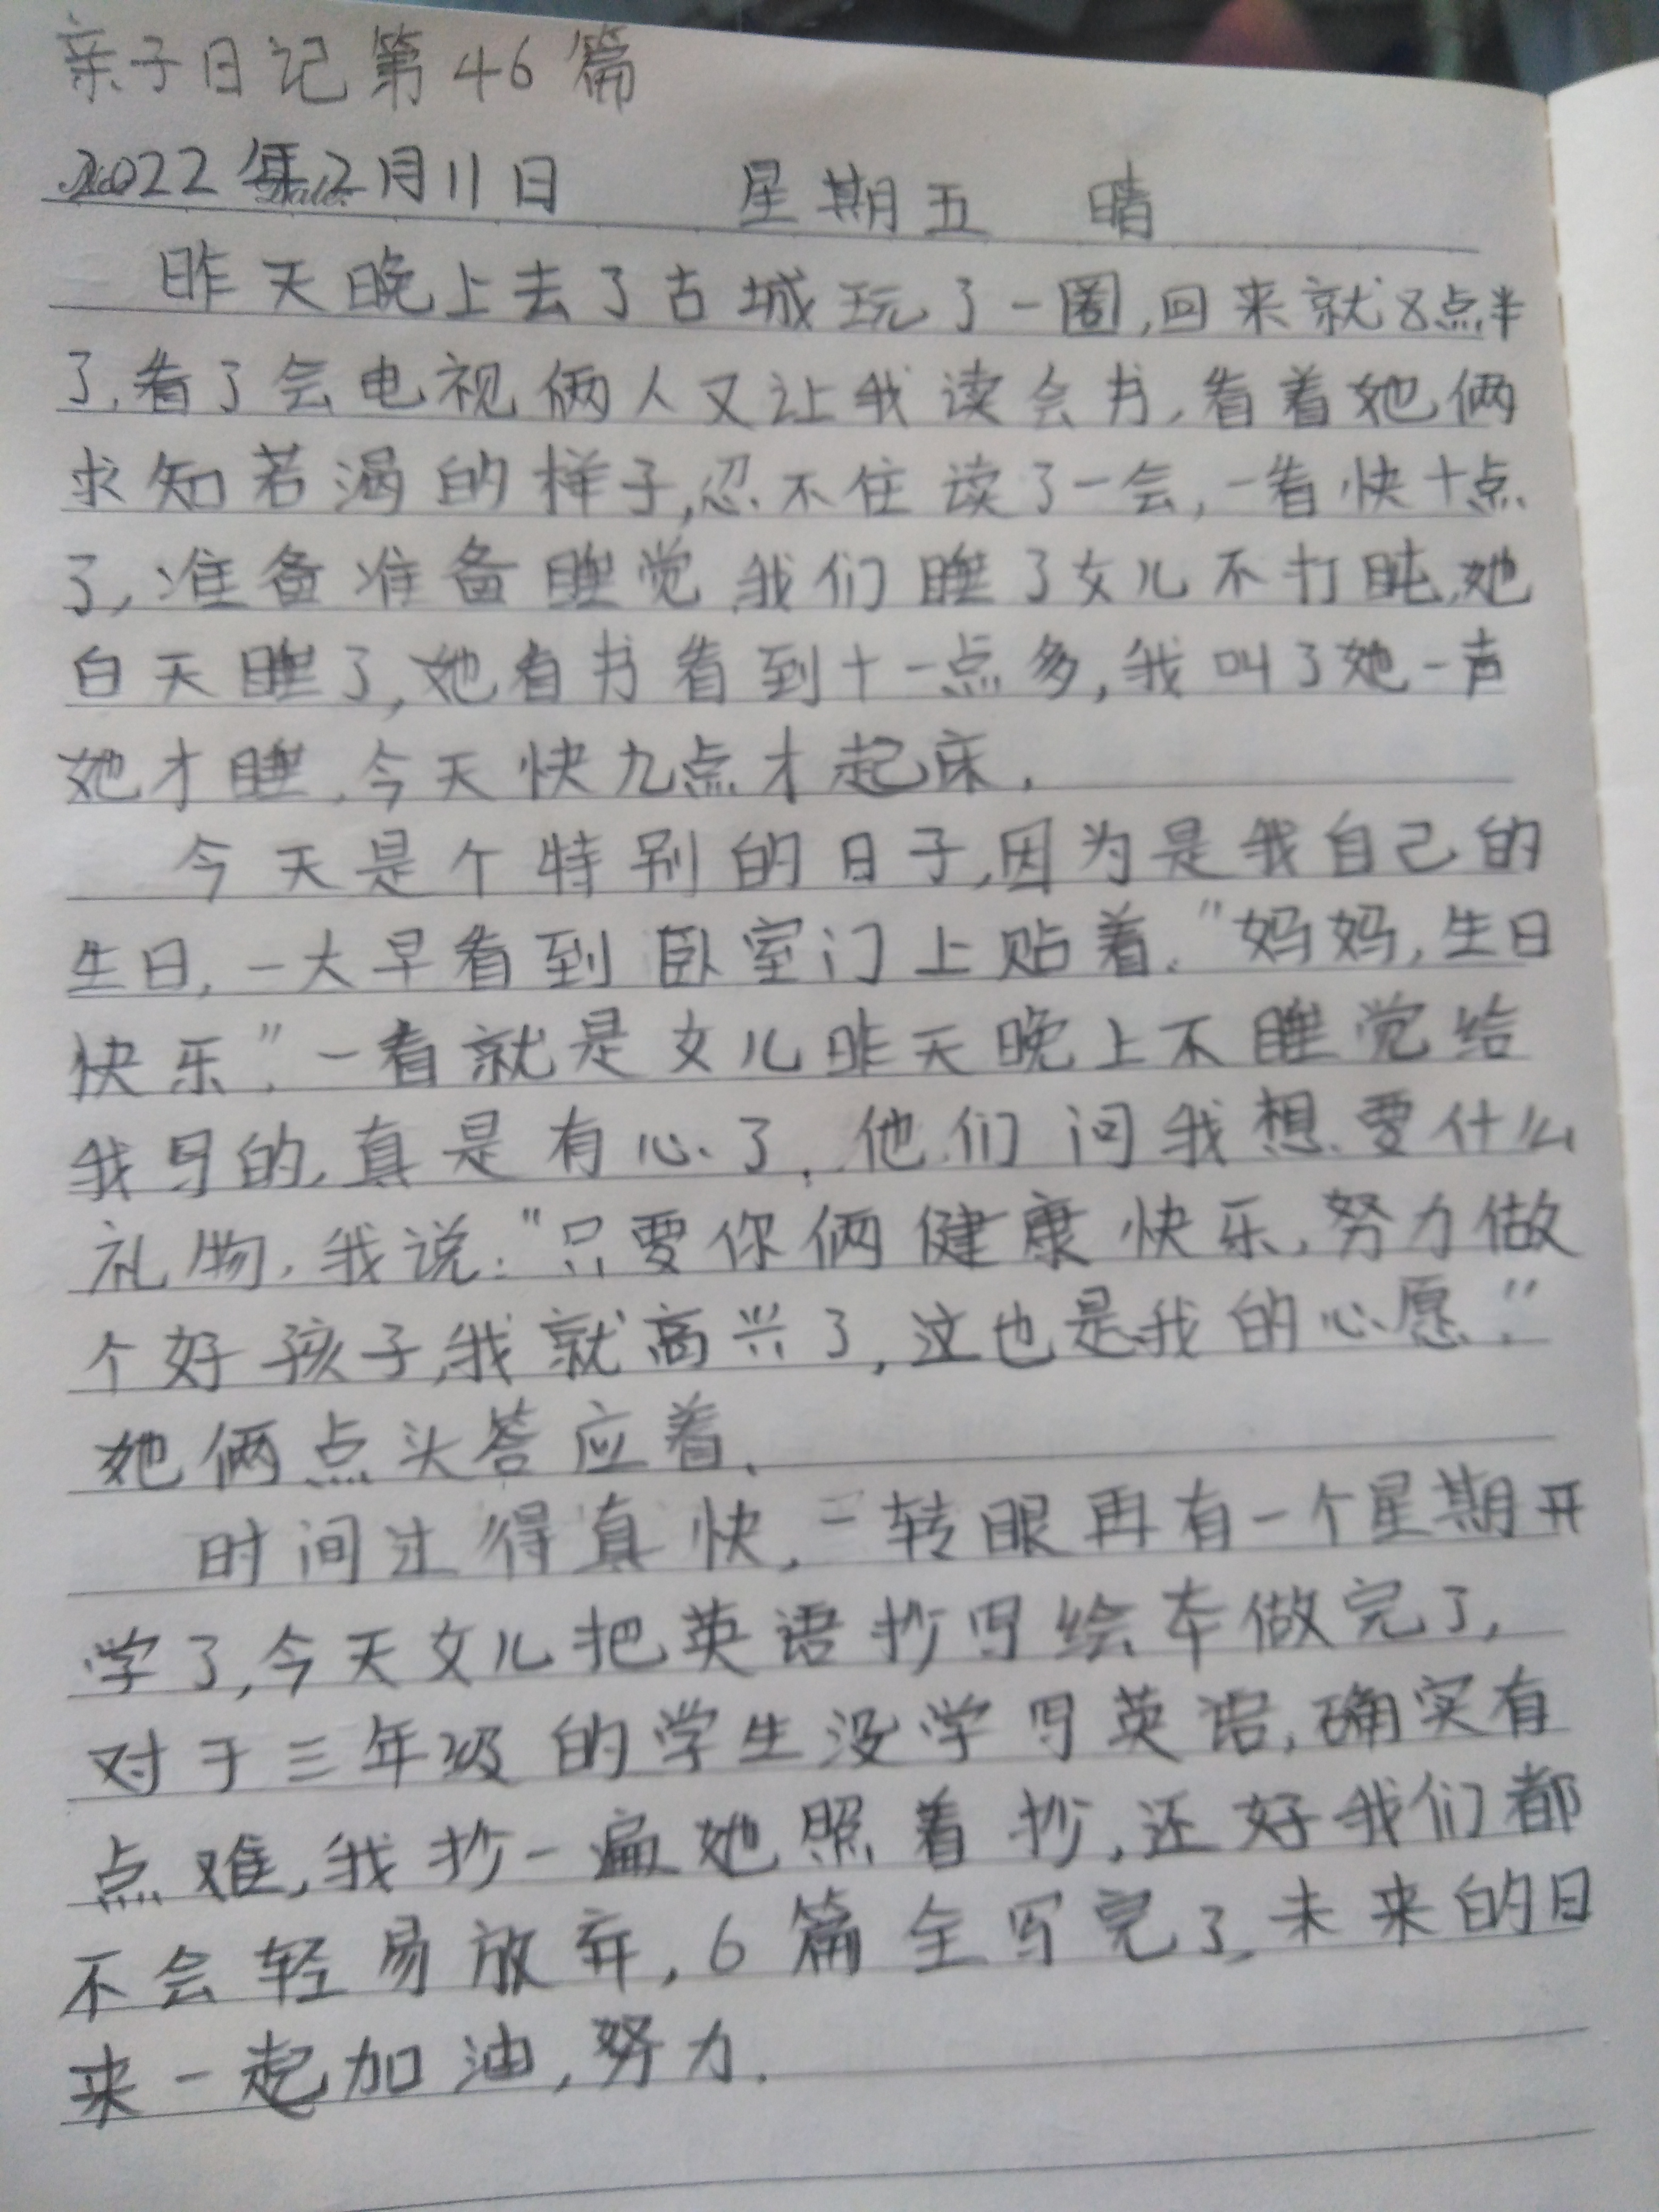 亲子日记第46篇
2022年2月11日 星期五 晴
昨天晚上去了古城玩了一圈,回来就8点半
了.看了会电视俩人又让我读会书,看着她俩
求知若渴的样子,忍不住读了一会,一看快十点
了,准备准备睡觉,我们睡了女儿不打盹,她
白天睡了,她看书看到十一点多,我叫了她一声
她才睡.今天快九点才起床.
今天是个特别的日子,因为是我自己的
生日,一大早看到卧室门上贴着."妈妈,生日
快乐".一看就是女儿昨天晚上不睡觉给
我写的,真是有心了.他们问我想要什么
礼物,我说:"只要你俩健康快乐,努力做
个好孩子,我就高兴了,这也是我的心愿."
她俩点头答应着.
时间过得真快,一转眼再有一个星期开
学了,今天女儿把英语抄写绘本做完了,
对于三年级的学生没学写英语,确实有
点难,我抄一遍她照着抄,还好我们都
不会轻易放弃,6篇全写完了,未来的日
来一起加油,努力.